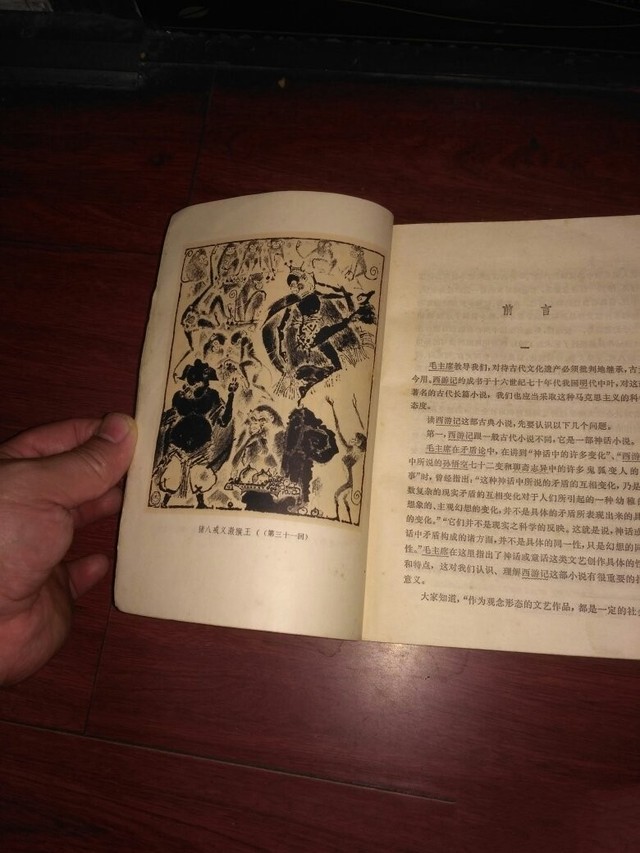 猪八戒义激猴王（（第三十一回）
前言
一
毛主席教导我们，对待古代文化遗产必须批判地继承，古为
今用。西游记的成书于十六世纪七十年代我国明代中叶，对这部
著名的古代长篇小说，我们也应当采取这种马克思主义的科学
态度。
读西游记这部古典小说，先要认识以下几个问题。
第一，西游记跟一般古代小说不同，它是一部神话小说。
毛主席在矛盾论中，在讲到“神话中的许多变化”、“西游
中所说的孙悟空七十二变和聊斋志异中的许多鬼狐变人的
事”时，曾经指出，“这种神话中所说的矛盾的互相变化，乃是
数复杂的现实矛盾的互相变化对于人们所引起的一种幼稚
想象的、主观幻想的变化，并不是具体的矛盾所表现出来的具
的变化。”“它们并不是现实之科学的反映。这就是说，神话或
话中矛盾构成的诸方面，并不是具体的同一性，只是幻想的同
性。”毛主席在这里指出了神话或童话这类文艺创作具体的性
和特点，这对我们认识、理解西游记这部小说有很重要的
意义。
大家知道，“作为观念形态的文艺作品，都是一定的社